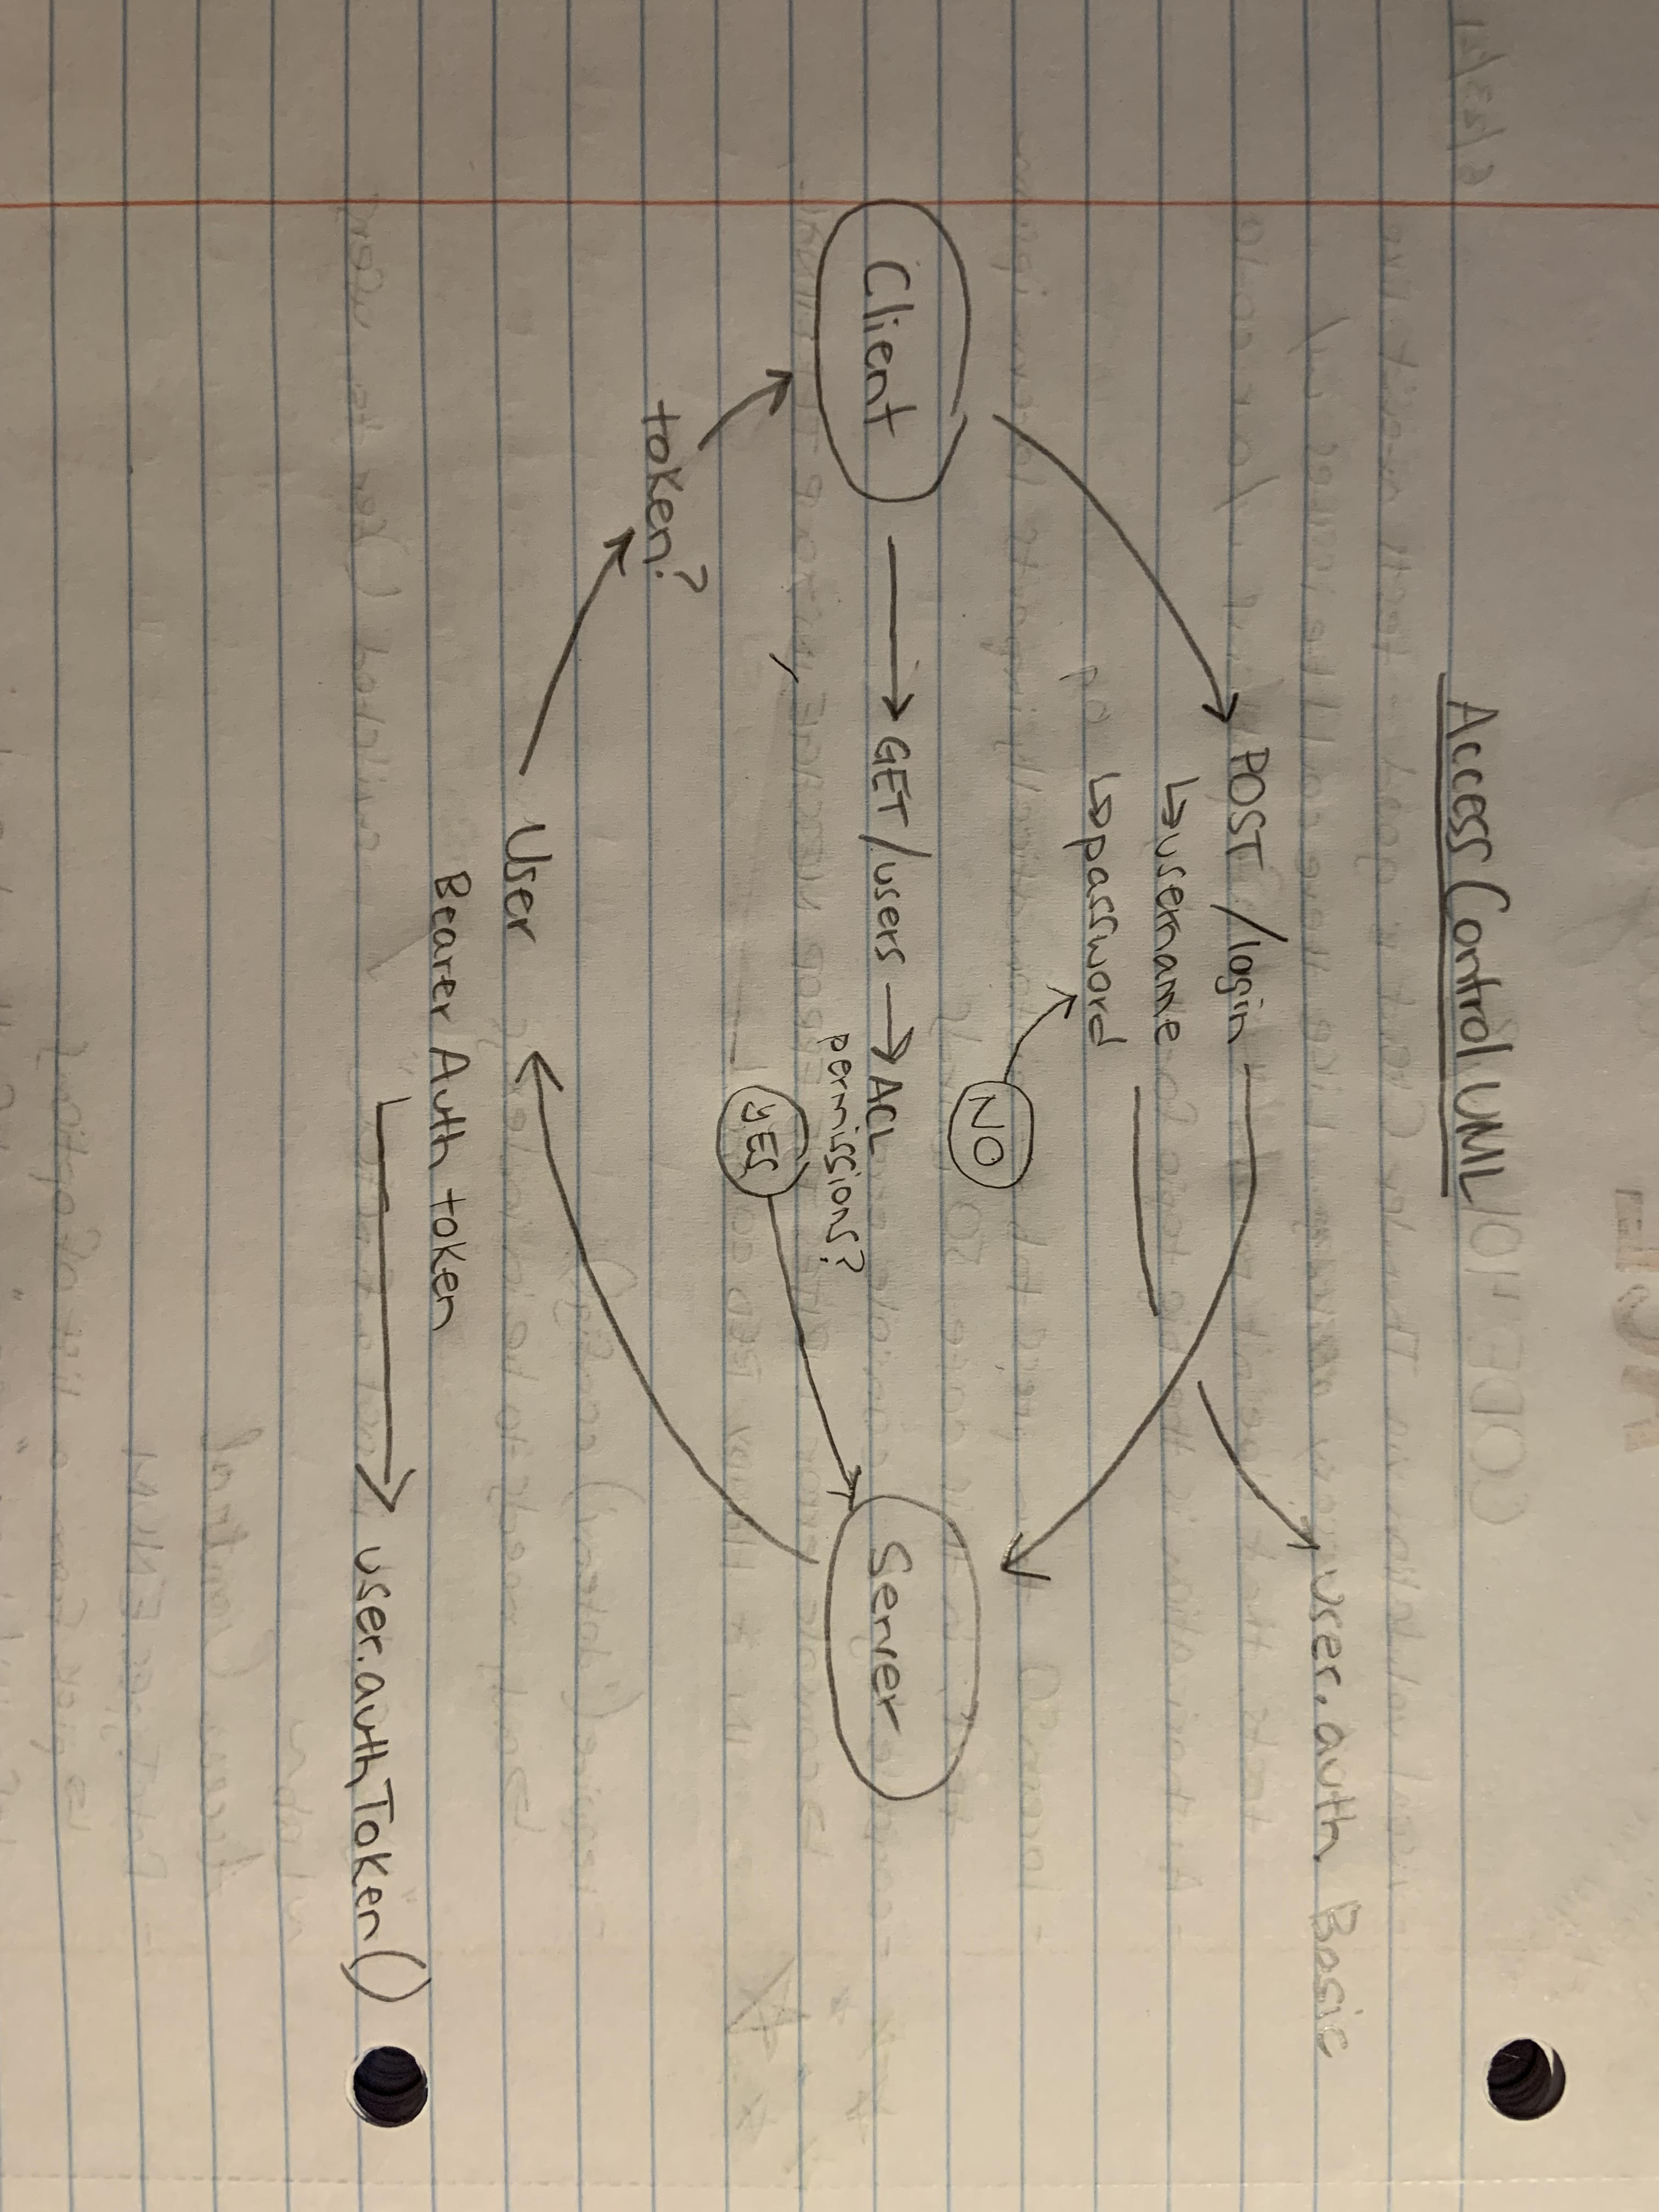 Access Control UML
user.auth Basic
POST /login
↳username
↳password
NO
Client
GET /users
ACL
permissions?
Server
YES
token?
User
Bearer Auth token
user.authToken()